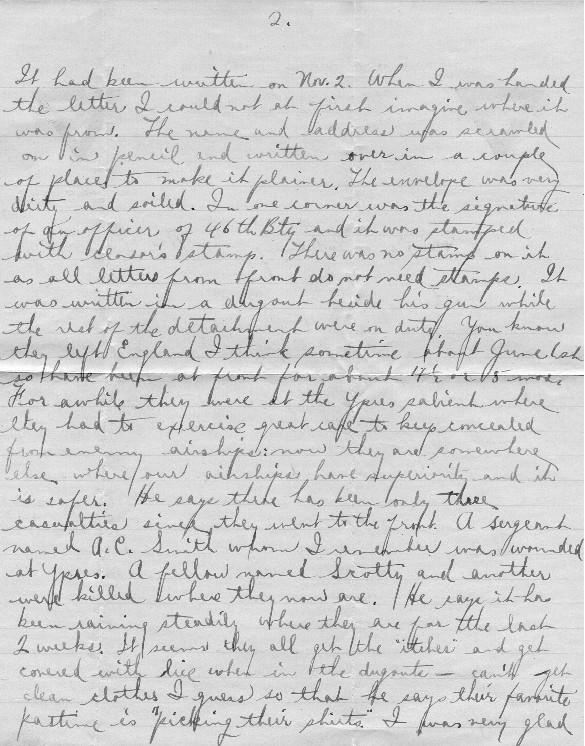 2.
It had been written on Nov. 2. When I was handed
the letter I could not at first imagine where it
was from. The name and address was scrawled
on in pencil and written over in a couple
of places to make it plainer. The envelope was very
dirty and soiled. In one corner was the signature
of an officer of 46th Bty and it was stamped
with censor's stamp. There was no stamp on it
as all letters from front do not need stamps. It
was written in a dugout beside his gun while
the rest of the detachment were on duty. You know
they left England I think sometime about June 1st
so have been at front for about 4½ or 5 mos.
For awhile they were at the Ypres salient where
they had to exercise great care to keep concealed
from enemy airships: now they are somewhere
else where our airships have superiority and it
is safer. He says there has been only three
casualties since they went to the front. A sergeant
named A.C. Smith whom I remember was wounded
at Ypres. A fellow named and another
were killed where they now are. He says it has
been raining steadily where they are for the last
2 weeks. It seems they all get the "itches" and get
covered with lice when in the dugouts — can't get
clean clothes I guess so that he says their favorite
pastime is "picking their shirts." I was very glad